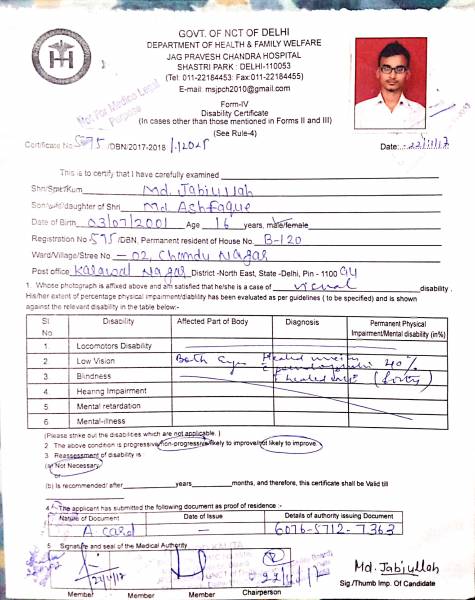 GOVT. OF NCT OF DELHI
DEPARTMENT OF HEALTH & FAMILY WELFARE
JAG PRAVESH CHANDRA HOSPITAL
SHASTRI PARK : DELHI-110053
(Tel: 011-22184453: Fax:011-22184455)
E-mail: msjpch2010@gmail.com
Not For Medico Legal
Purpose
Form-IV
Disability Certificate
(In cases other than those mentioned in Forms II and III)
(See Rule-4)
Certificate No 5875 /DBN/2017-2018 Date:
This is to certify that I have carefully examined
Shri/Smt/Kum Md. Jabiullah
Son/wife/daughter of Shri Md Ashfaque
Date of Birth 03/07/2001 Age 16 years, male/female
Registration No 575 /DBN, Permanent resident of House No. B-120
Ward/Village/Stree No - 02, Chandu Nagar
Post office Karawal Nagar District -North East, State -Delhi, Pin - 1100 94
1. Whose photograph is affixed above and am satisfied that he/she is a case of visual disability .
His/her extent of percentage physical impairment/diability has been evaluated as per guidelines ( to be specified) and is shown
against the relevant disability in the table below:-
Sl. No. Disability Affected Part of Body Diagnosis Permanent Physical Impairment/Mental disability (in%)
1. Locomotors Disability
2 Low Vision Both Eyes Healed 40%
3. Blindness healed (forty)
4 Hearing Impairment
5 Mental retardation
6 Mental-illness
(Please strike out the disabilities which are not applicable. )
2 The above condition is progressive/non-progressive/likely to improve/not likely to improve
3 Reassessment of disability is :
(a) Not Necessary
or
(b) Is recommended/ after years months, and therefore, this certificate shall be Valid till
4 The applicant has submitted the following document as proof of residence :-
Nature of Document Date of Issue Details of authority issuing Document
A card — 6076-5712-7363
5 Signature and seal of the Medical Authority
Md. Jabiullah
Sig./Thumb Imp. Of Candidate
Member Member Member Chairperson